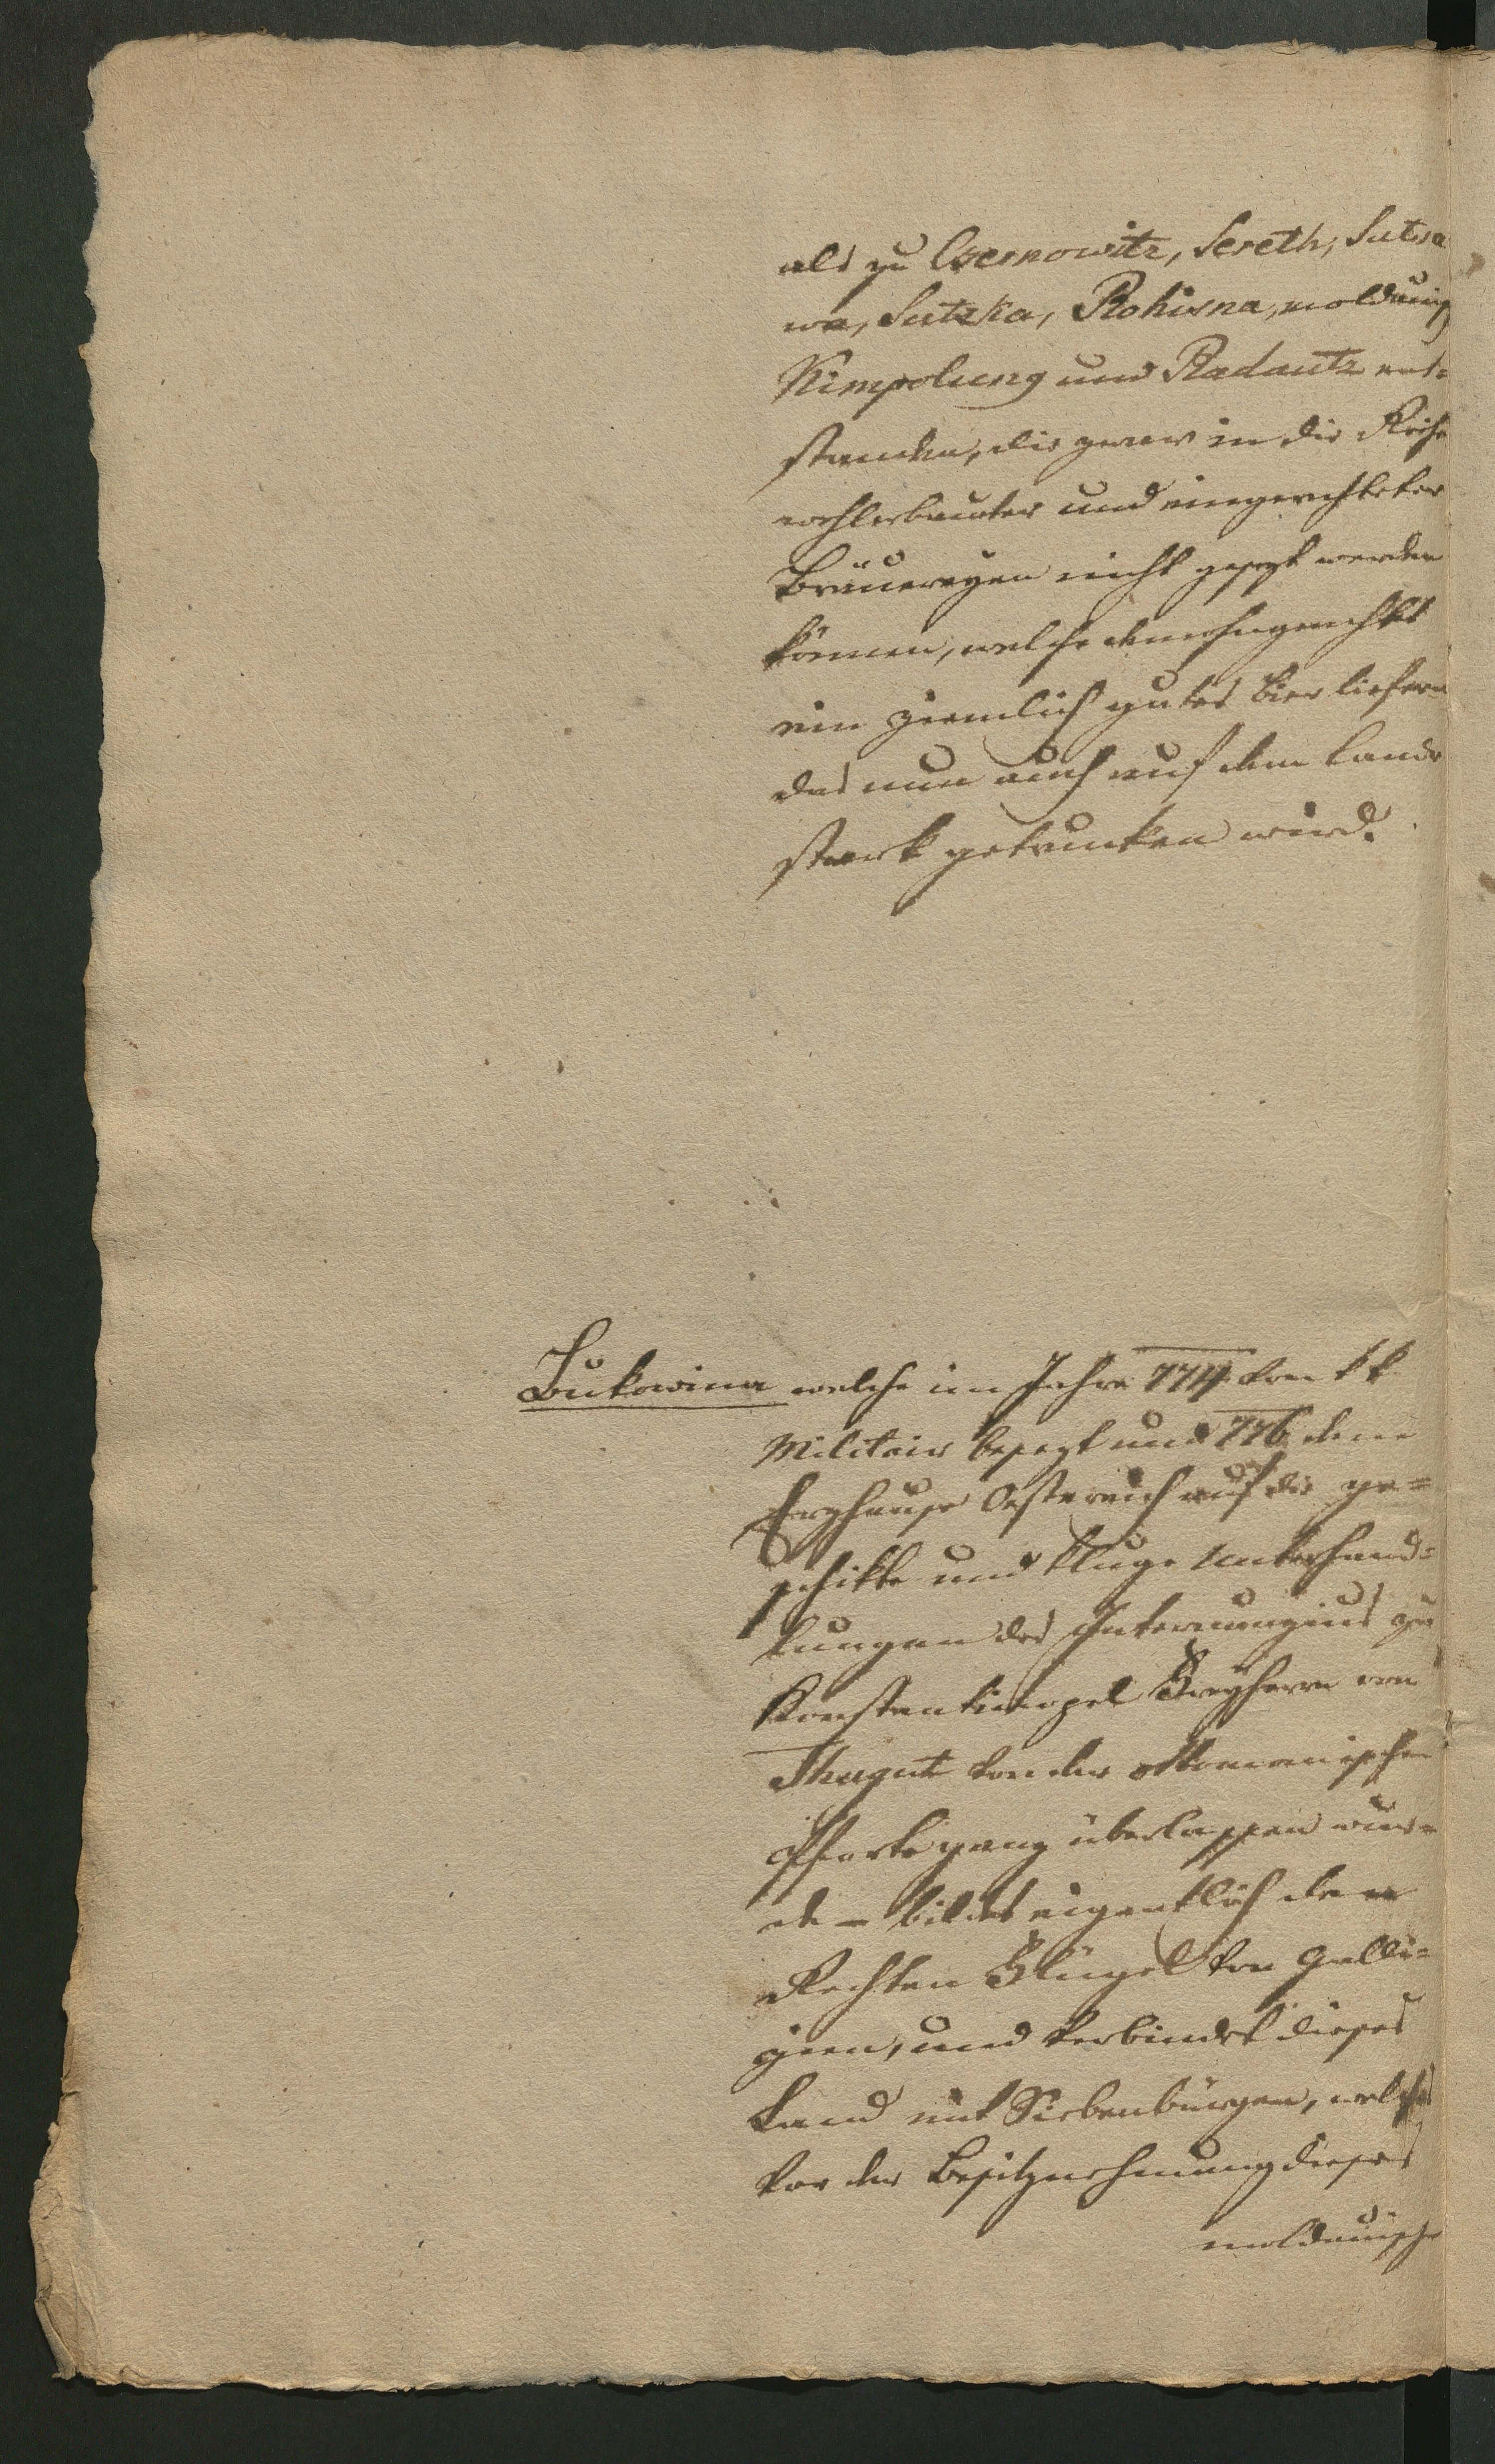 als zu Czernowitz, Sereth, Sutscha
wa, Sutzka, Rohisna, moldauisch
Kimpolung und Radautz ent=
standen, die zwar in die Reihe
wohlerbauter und eingerichteter
Bräuereyen nicht gesezt werden
können, welche demohngeachtet
ein ziemlich gutes Bier liefern
das nun auch auf dem Lande
stark getrunken wird.
Bukowina welche im Jahre 774 von kk
Militair besezt und 776 dem
Erzhause Oestereich auf die ge=
schikte und kluge Unterhand=
lungen des Internunzius zu
Konstantinopel Freyherrn von
Thugut von der ottomanischen
Pforte ganz überlassen wur=
de – bildet eigentlich den
Rechten Flügel von Galli=
zien, und verbindet dieses
Land mit Siebenbürgen, welches
vor der Besitznehmung dieses
moldauische